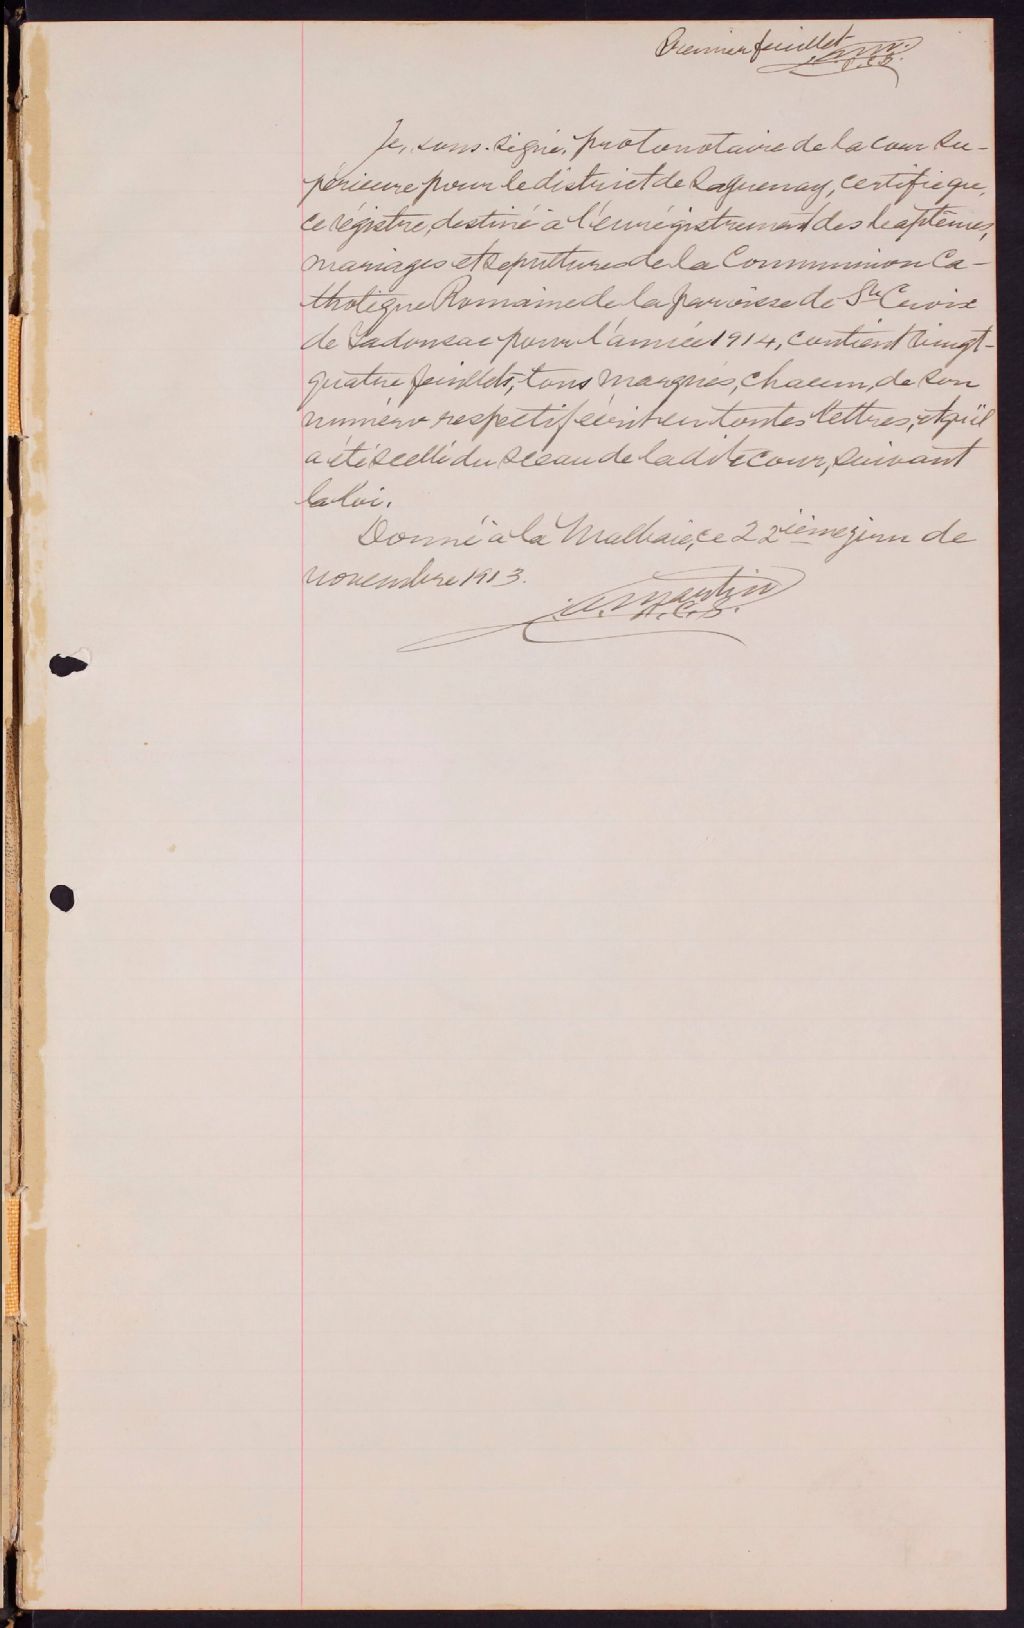 Premier feuillet
P.C.S.
Je, sous-signé, protonotaire de la cour Su-
périeure pour le district de Saguenay, certifie que
ce régistre, destiné à l'enrégistrement des baptêmes,
mariages et sépultures de la Communion Ca-
tholique Romaine de la paroisse de Ste Croix
de Tadousac pour l'année 1914, contient vingt-
quatre feuillets, tous marqués, chacun, de son
numéro respectif écrit en toutes lettres, et qu'il
a été scellé du sceau de la dite cour, suivant
la loi.
Donné à la Malbaie, ce 22ième jour de
novembre 1913.
Martin
P.C.S.